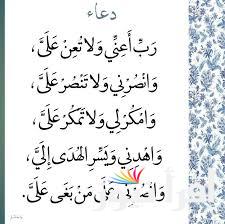 دعاء
رَبِّ أَعِنِّي وَلَا تُعِنْ عَلَيَّ،
وَانْصُرْنِي وَلَا تَنْصُرْ عَلَيَّ،
وَامْكُرْ لِي وَلَا تَمْكُرْ عَلَيَّ،
وَاهْدِنِي وَيَسِّرِ الْهُدَى إِلَيَّ،
وَانْصُرْنِي عَلَى مَنْ بَغَى عَلَيَّ.